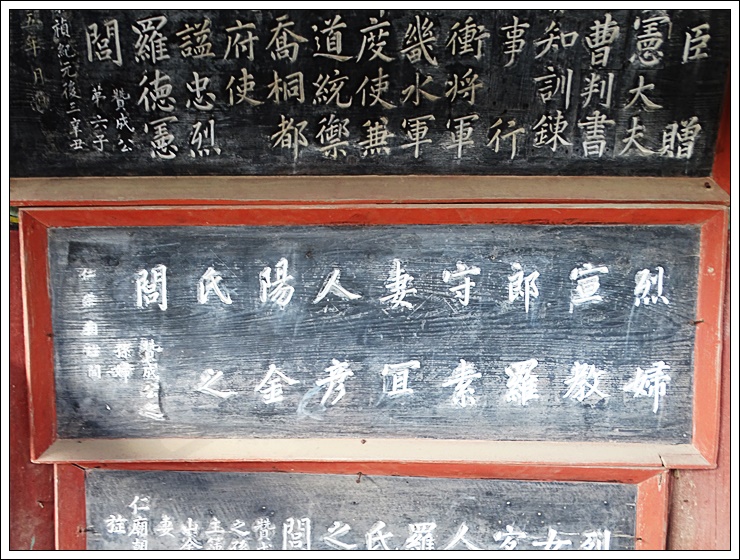 臣 贈
憲大夫
曹判書
知訓鍊
事 行
衝將軍
畿水軍
度使兼
道統禦
喬桐都
府使
謚忠烈
羅德憲
閭
贊成公
第六子
禎紀元後三辛丑
五年月
烈婦
宣敎
郎羅
守素
妻宜
人彦
陽金
氏之
閭
贊成公之
孫婦
仁廟朝旌閭
烈
女
宜
人
羅
氏
之
閭
贊成
之孫
主簿
山金
妻
仁廟朝
旌